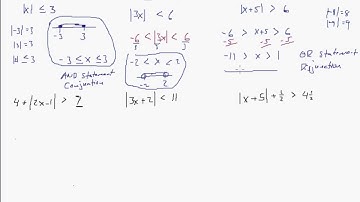 |x| ≤ 3
|-3| = 3
|3| = 3
|x| ≤ 3
-3 3
-3 ≤ x ≤ 3
AND Statement
Conjunction
|3x| < 6
-6 < |3x| < 6
3 3 3
-2 < x < 2
-2 2
|x+5| > 6
-6 > x+5 > 6
-5 -5 -5
-11 > x > 1
OR Statement
Disjunction
|-8| = 8
|-9| = 9
4+|2x-1| > 7
|3x+2| < 11
|x+5| + 1/2 > 4 1/2